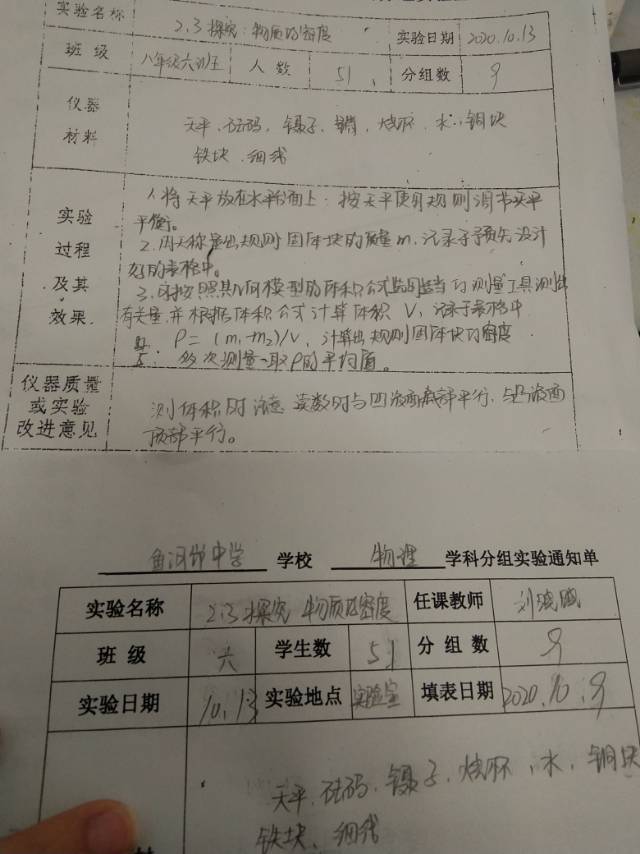 实验名称 2.3探究:物质的密度 实验日期 2020.10.13
班 级 八年级六班 人 数 51 分组数 9
仪器 天平、砝码、镊子、烧杯、水、铜块
材料 铁块、细线
实验 1、将天平放在水平台面上,按天平使用规则调节天平
平衡。
过程 2.用天称量出规则固体块的质量m,记录于预先设计
好的表格中。
及其 3.按照其几何模型的体积公式 适当的测量工具测出
效果 有关量,并根据体积公式计算体积 V,记录于表格中
4. ρ=(m₁-m₂)/V,计算出规则固体块的密度
5. 多次测量取ρ的平均值。
仪器质量 测体积时注意 读数时与凹液面底部平行,与凸液面
或实验 顶部平行。
改进意见
中学 学校 物理 学科分组实验通知单
实验名称 2.3探究 物质的密度 任课教师 刘
班 级 六 学生数 51 分组数 9
实验日期 10.13 实验地点 实验室 填表日期 2020.10.9
天平、砝码、镊子、烧杯、水、铜块
铁块、细线